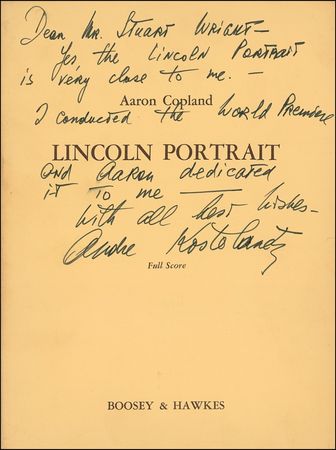 Dear Mr. Stuart Wright -
Yes, the Lincoln Portrait
is very close to me. -
Aaron Copland
I conducted the World Premiere
LINCOLN PORTRAIT
and Aaron dedicated
it to me —
with all best wishes -
Andre Kostelanetz
Full Score
BOOSEY & HAWKES